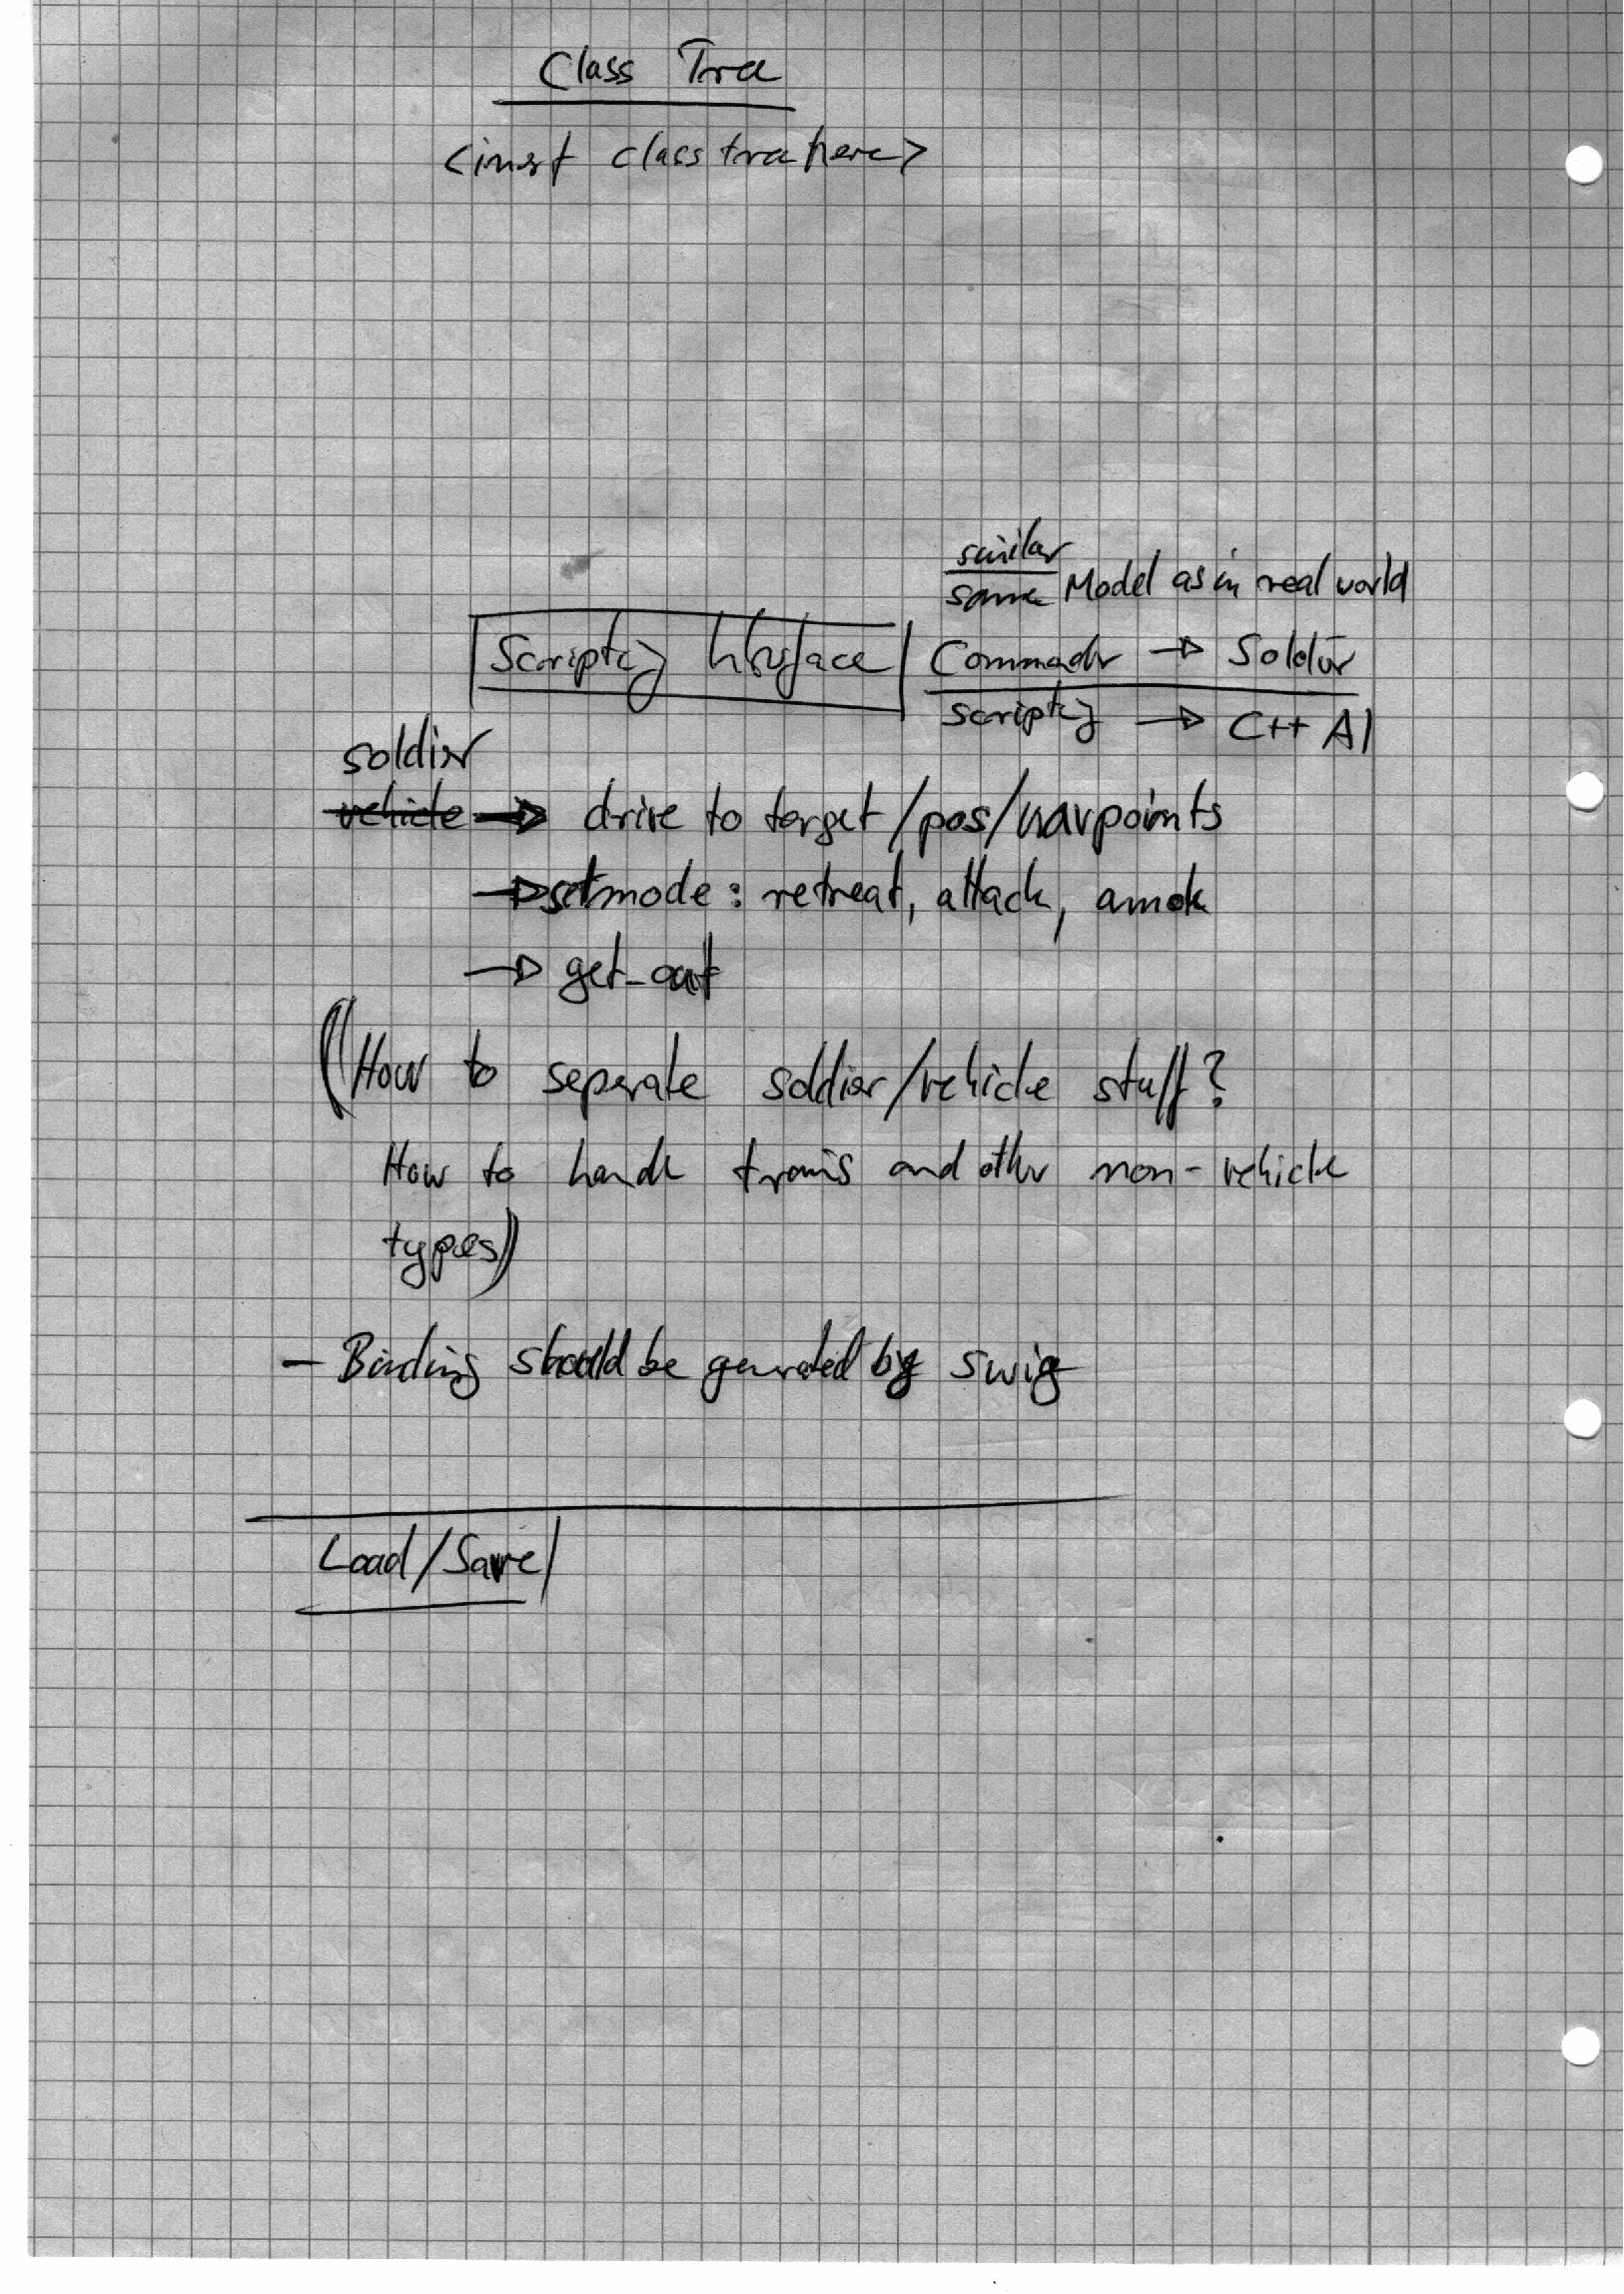 Class Tree
<insert class tree here>
similar
same Model as in real world
Scripting Interface
Commander → Soldier
scripting → C++ AI
soldier
vehicle → drive to target/pos/waypoints
→ set mode: retreat, attack, amok
→ get_out
((How to separate soldier/vehicle stuff?
How to handle trains and other non-vehicle
types))
- Binding should be generated by swig
Load/Save